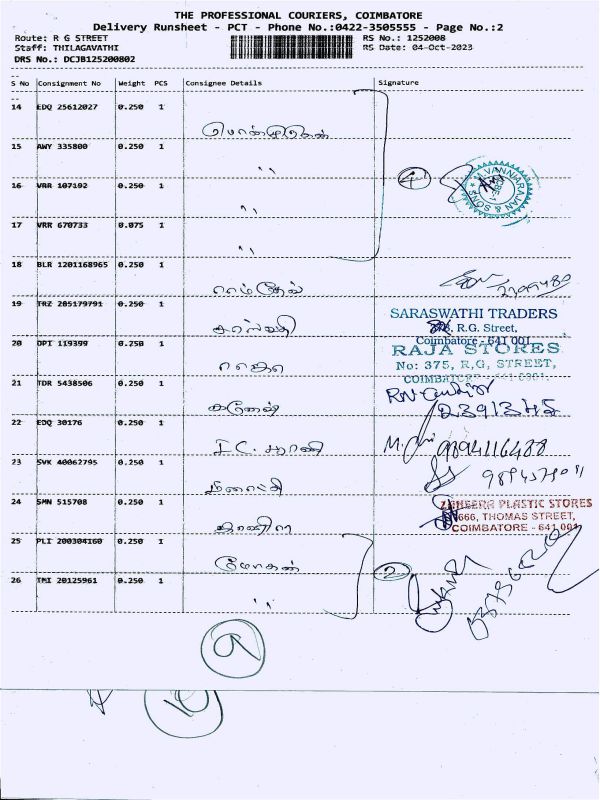 THE PROFESSIONAL COURIERS, COIMBATORE
Delivery Runsheet - PCT - Phone No.:0422-3505555 - Page No.:2
Route: R G STREET RS No.: 1252008
Staff: THILAGAVATHI RS Date: 04-Oct-2023
DRS No.: DCJB125200802
S No Consignment No Weight PCS Consignee Details Signature
14 EDQ 25612027 0.250 1
15 AWY 335800 0.250 1
,,
16 VRR 107192 0.250 1
,,
④
VANNIARAJAN & SONS
17 VRR 670733 0.075 1
,,
18 BLR 1201168965 0.250 1
ராம்தேவ்
19 TRZ 205179791 0.250 1
சரஸ்வதி
SARASWATHI TRADERS
R.G. Street,
Coimbatore - 641 001
20 DPI 119399 0.250 1
ராஜா
RAJA STORES
No: 375, R,G, STREET,
COIMBATORE - 641 0001.
21 TDR 5438506 0.250 1
கணேஷ்
2391345
22 EDQ 30176 0.250 1
I.C. ராணி
9894116488
23 SVK 40062795 0.250 1
மீனாட்சி
24 SMN 515708 0.250 1
ஜாஹிரா
ZAHEERA PLASTIC STORES
666, THOMAS STREET,
COIMBATORE - 641 001
25 PLI 200304160 0.250 1
மோகன்
②
26 TMI 20125961 0.250 1
,,
⑨